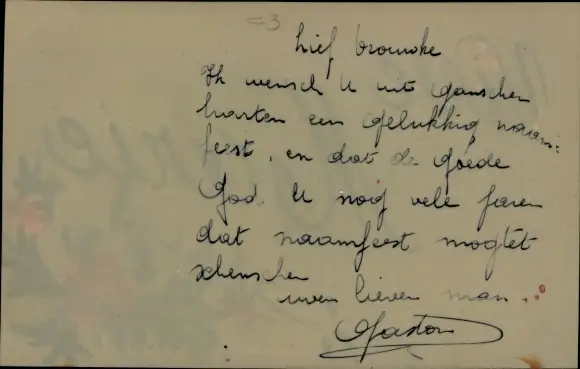 =3
Lief vrouwke
Ik wensch U uit ganscher
harten een gelukkig naam=
feest, en dat de goede
God U nog vele jaren
dat naamfeest mogt
schenken
uwen lieven man.
Gaston